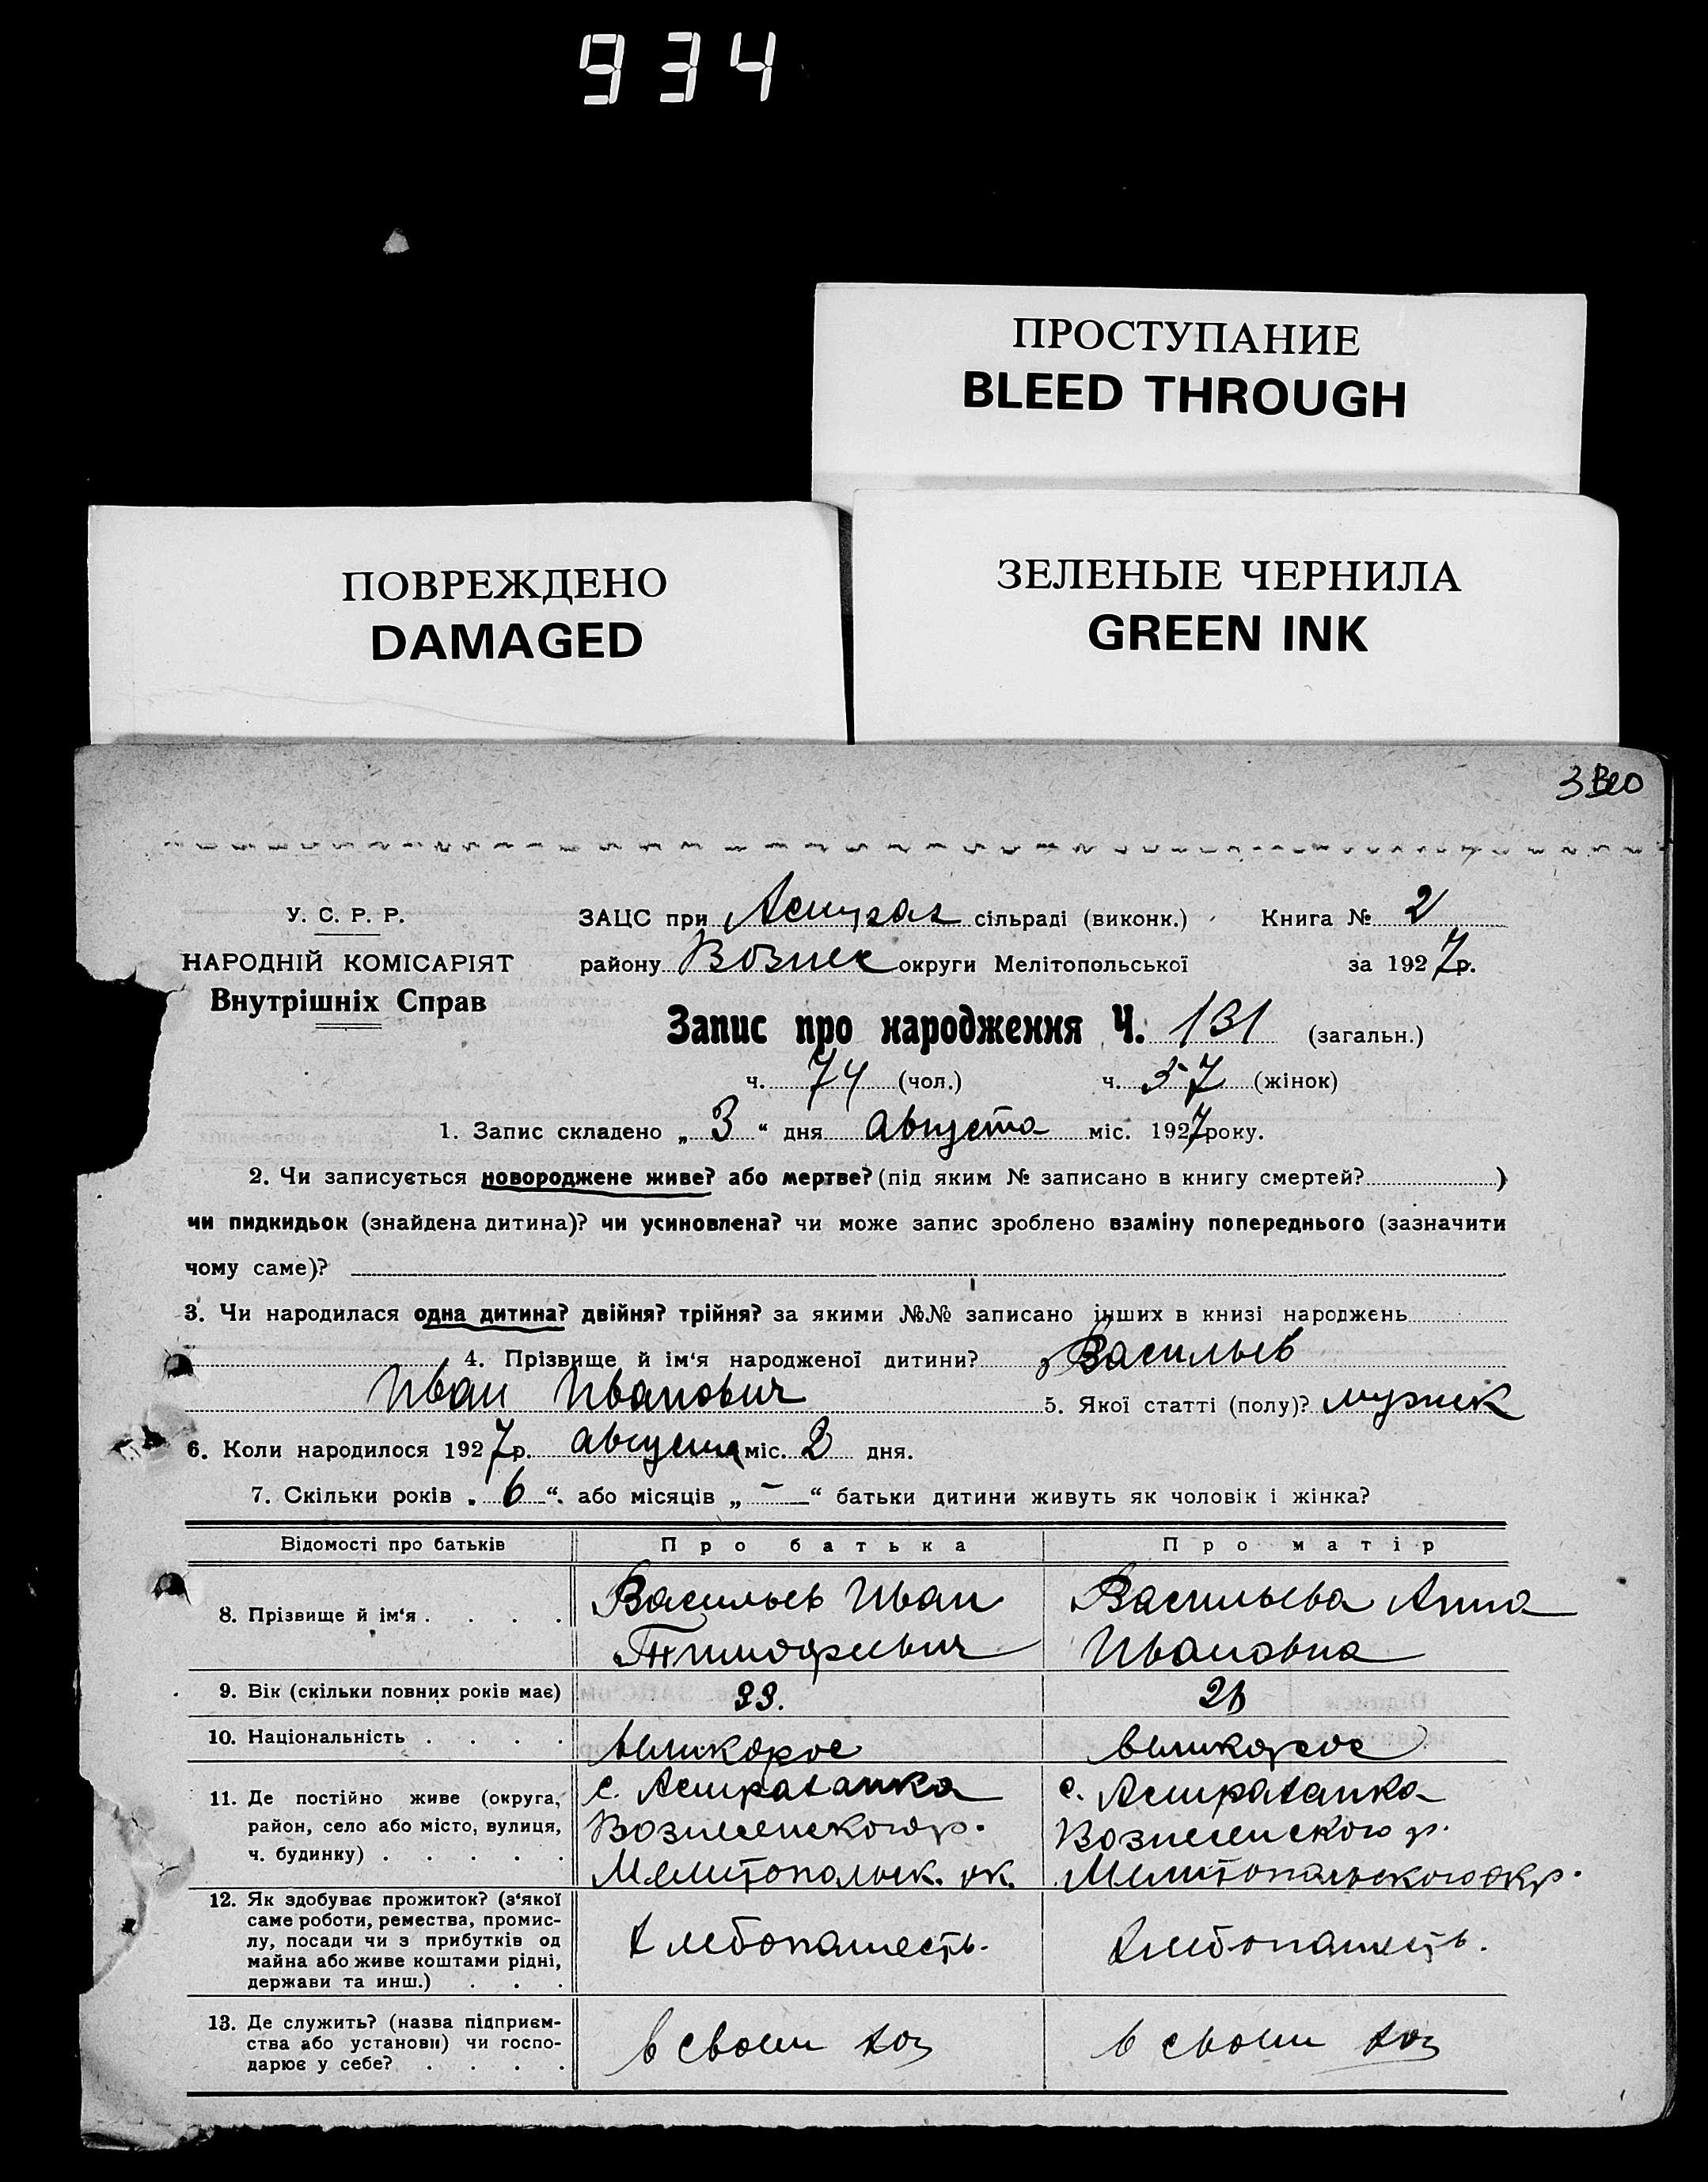 934
ПРОСТУПАНИЕ
BLEED THROUGH
ПОВРЕЖДЕНО
DAMAGED
ЗЕЛЕНЫЕ ЧЕРНИЛА
GREEN INK
У. С. Р. Р.
НАРОДНІЙ КОМІСАРІЯТ
Внутрішніх Справ
ЗАЦС при сільраді (виконк.) Книга № 2
району Вознес округи Мелітопольської за 1927р.
Запис про народження Ч. 131 (загальн.)
ч. 74 (чол.) ч. 57 (жінок)
1. Запис складено „ 3 “ дня августа міс. 1927 року.
2. Чи записується новороджене живе? або мертве? (під яким № записано в книгу смертей? )
чи пидкидьок (знайдена дитина)? чи усиновлена? чи може запис зроблено взаміну попереднього (зазначити
чому саме)?
3. Чи народилася одна дитина? двійня? трійня? за якими №№ записано інших в книзі народжень
4. Прізвище й ім‘я народженої дитини? Васильев
Иван Иванович 5. Якої статті (полу)? мужск
6. Коли народилося 1927р. августа міс. 2 дня.
7. Скільки років „ 6 “. або місяців „ — “ батьки дитини живуть як чоловік і жінка?
Відомості про батьків Про батька Про матір
8. Прізвище й ім‘я . . . . Васильев Иван Васильева Анна
Тимофеевич Ивановна
9. Вік (скільки повних років має) 33.
10. Національність . . . . великорос великорос
11. Де постійно живе (округа, с. Астраханка с. Астраханка
район, село або місто, вулиця, Вознесенского р. Вознесенского р.
ч. будинку) . . . . . Мелитопольск. ок. Мелитопольского окр.
12. Як здобуває прожиток? (з‘якої
саме роботи, ремества, промис-
лу, посади чи з прибутків од хлебопашеств. хлебопашеств.
майна або живе коштами рідні,
держави та инш.) . . .
13. Де служить? (назва підприєм-
ства або установи) чи госпо- в своем хоз в своем хоз
дарює у себе? . . . .